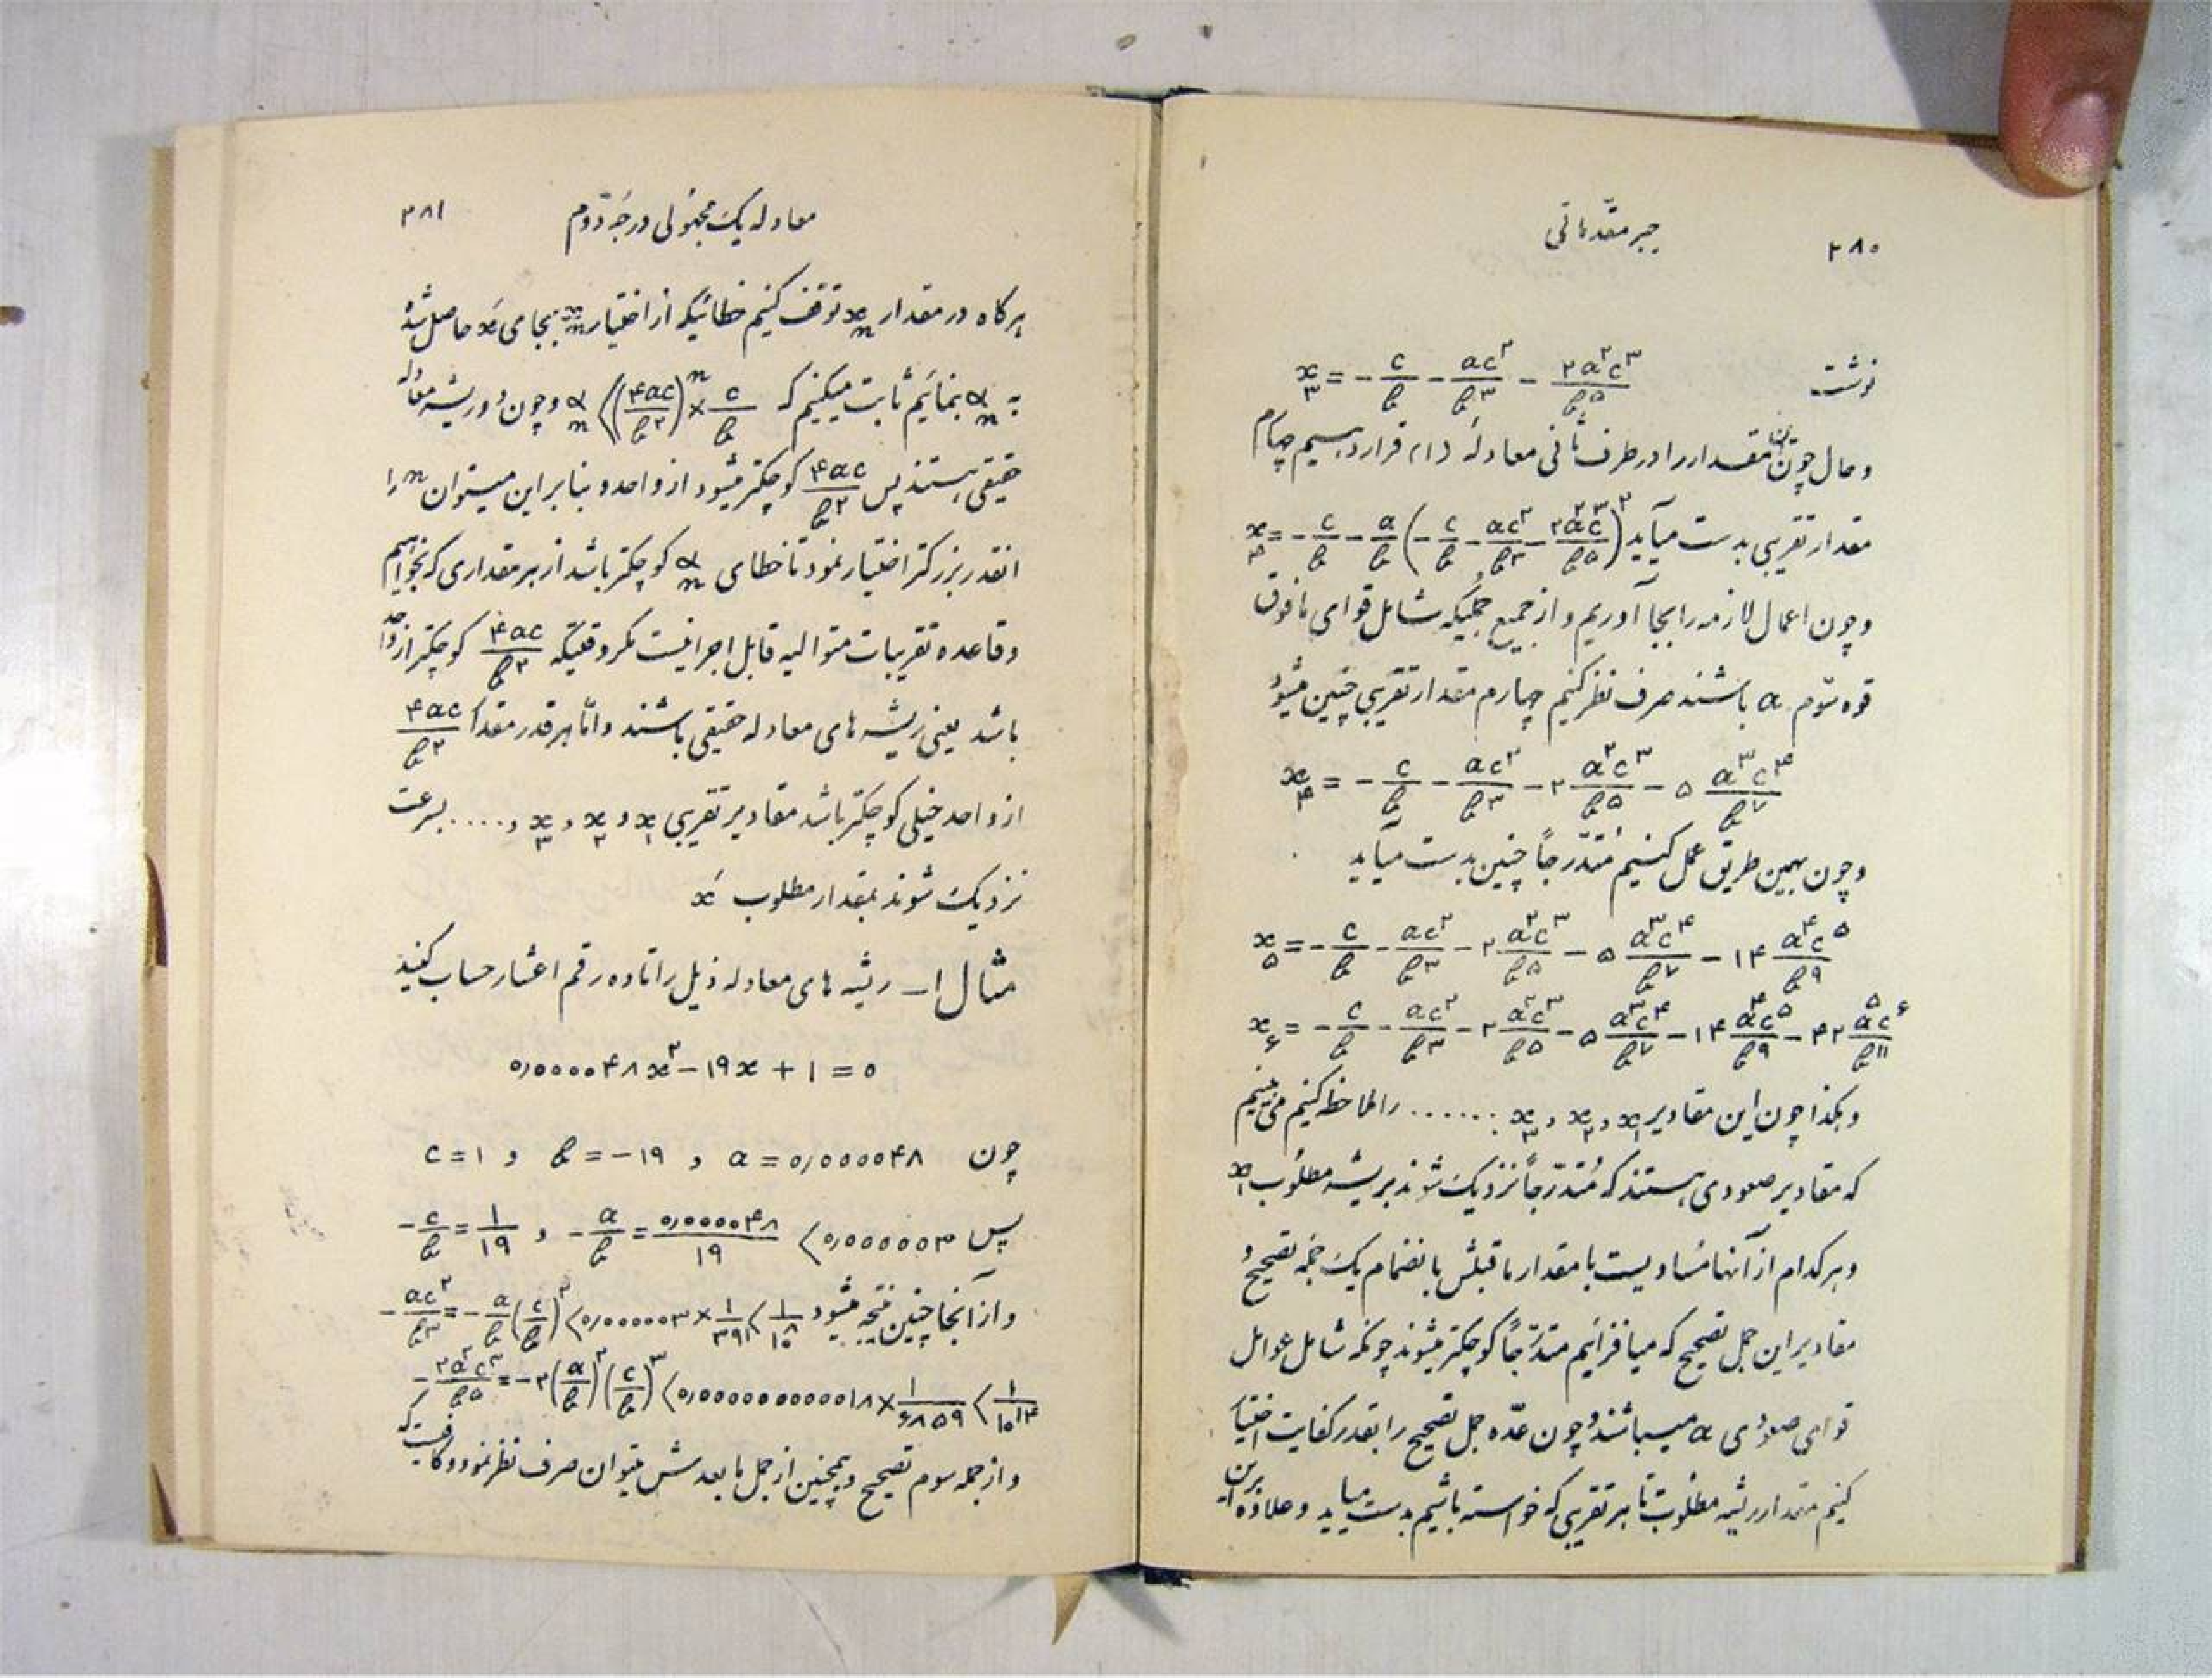 ۲۸۰ جبر مقدماتی
نوشت x₃ = - c/b - ac^۲/b^۳ - ۲a^۲c^۳/b^۵
و حال چون این مقدار را در طرف ثانی معادلهٔ (۱) قرار دهیم چهارم
مقدار تقریبی بدست میآید x₄ = - c/b - a/b (- c/b - ac^۲/b^۳ - ۲a^۲c^۳/b^۵)^۲
و چون اعمال لازمه را بجا آوریم و از جمیع جملیکه شامل قوای مافوق
قوه سوم a باشند صرف نظر کنیم چهارم مقدار تقریبی چنین میشود
x₄ = - c/b - ac^۲/b^۳ - ۲ a^۲c^۳/b^۵ - ۵ a^۳c^۴/b^۷
و چون بهمین طریق عمل کنیم مُتدرّجاً چنین بدست میآید
x₅ = - c/b - ac^۲/b^۳ - ۲ a^۲c^۳/b^۵ - ۵ a^۳c^۴/b^۷ - ۱۴ a^۴c^۵/b^۹
x₆ = - c/b - ac^۲/b^۳ - ۲ a^۲c^۳/b^۵ - ۵ a^۳c^۴/b^۷ - ۱۴ a^۴c^۵/b^۹ - ۴۲ a^۵c^۶/b^۱۱
و هکذا چون این مقادیر x₁ و x₂ و x₃ ...... را ملاحظه کنیم می بینیم
که مقادیر صعودی هستند که مُتدرّجاً نزدیک شوند بریشه مطلوب
و هر کدام از آنها مساویست با مقدار ماقبلش بانضمام یک جمله تصحیح و
مقادیر این جمل تصحیح که میافزائیم متدرّجاً کوچکتر میشوند چونکه شامل عوامل
قوای صعودی a میباشند و چون عدّه جمل تصحیح را بقدر کفایت اختیار
کنیم مقدار ریشه مطلوب تا هر تقریبی که خواسته باشیم بدست میاید و علاوه براین
معادله یک مجهولی درجه دوم ۲۸۱
هرگاه در مقدار xₙ توقف کنیم خطائیکه از اختیار xₙ بجای x′ حاصل شود
به αₙ بنمائیم ثابت میکنیم که αₙ < (۴ac/b^۲)^n × c/b و چون دو ریشه معادله
حقیقی هستند پس ۴ac/b^۲ کوچکتر میشود از واحد و بنابراین میتوان n را
انقدر بزرگتر اختیار نمود تا خطای αₙ کوچکتر باشد از هر مقداری که بخواهیم
و قاعده تقریبات متوالیه قابل اجرا نیست مگر وقتیکه ۴ac/b^۲ کوچکتر از واحد
باشد یعنی ریشه های معادله حقیقی باشند و امّا هر قدر مقدار ۴ac/b^۲
از واحد خیلی کوچکتر باشد مقادیر تقریبی x₁ و x₂ و x₃ و ..... بسرعت
نزدیک شوند بمقدار مطلوب x′
مثال ۱ـ ریشه های معادله ذیل را تا ده رقم اعشار حساب کنید
۰٫۰۰۰۰۴۸x^۲ - ۱۹x + ۱ = ۰
چون a = ۰٫۰۰۰۰۴۸ و b = -۱۹ و c = ۱
پس - a/b = ۰٫۰۰۰۰۴۸/۱۹ < ۰٫۰۰۰۰۰۳ و - c/b = ۱/۱۹
و از آنجا چنین نتیجه میشود - ac^۲/b^۳ = - a/b (c/b)^۲ < ۰٫۰۰۰۰۰۳ × ۱/۳۶۱ < ۱/۱۰^۸
- ۲a^۲c^۳/b^۵ = -۲(a/b)^۲(c/b)^۳ < ۰٫۰۰۰۰۰۰۰۰۰۰۱۸ × ۱/۶۸۵۹ < ۱/۱۰^۱۴
و از جمله سوم تصحیح و همچنین از جمل ما بعدش میتوان صرف نظر نمود و کافیست که